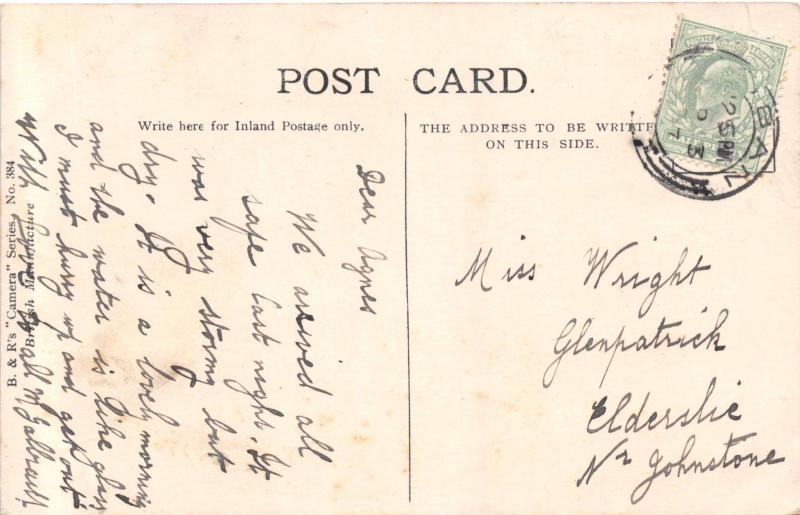 POST CARD.
Write here for Inland Postage only.
THE ADDRESS TO BE WRITT
ON THIS SIDE.
B. & R's "Camera" Series, No. 384
British Manufacture
Dear Agnes
We arrived all
safe last night. It
was very stormy but
dry. It is a lovely morning
and the water is like glass
I must hurry up and get out
With love to all M Galbraith
Miss Wright
Glenpatrick
Elderslie
Nr Johnstone